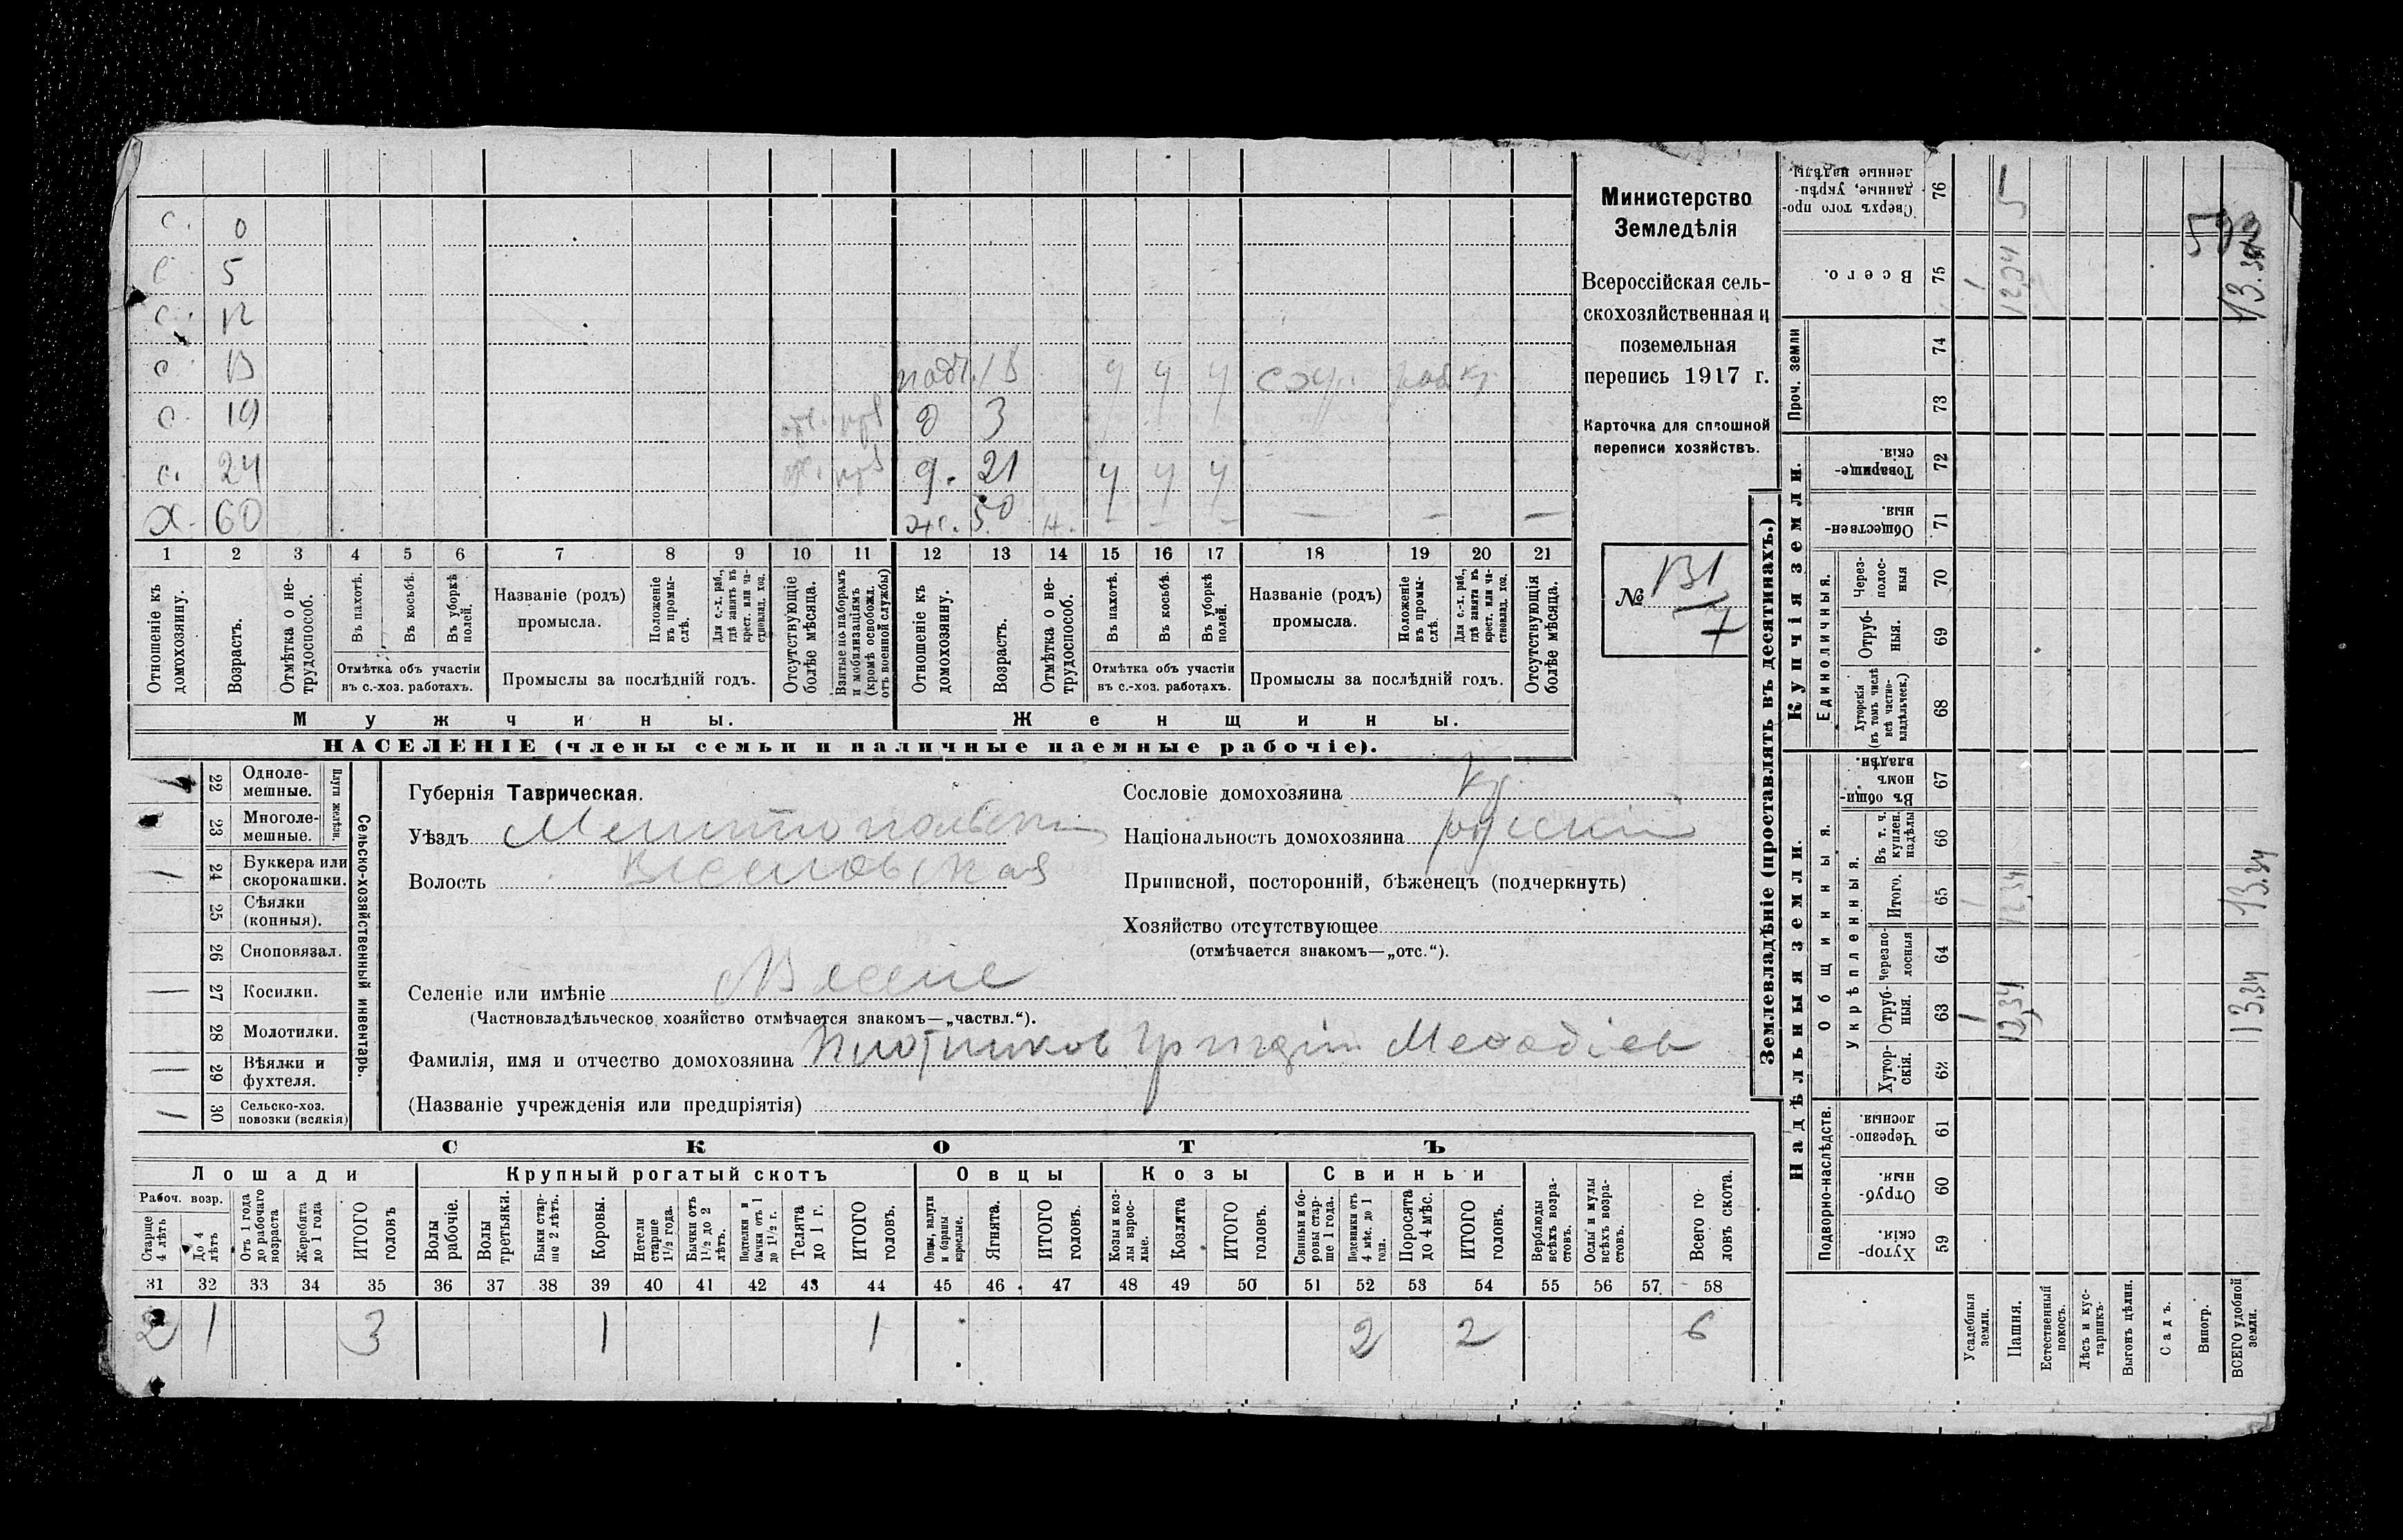 с. 0
с. 5
с. 12
с. 13
с. 19
с. 24
Х. 60
д 3
д. 21 ч ч ч
ж. 50 н. — — — — — —
1 2 3 4 5 6 7 8 9 10 11 12 13 14 15 16 17 18 19 20 21
Отношеніе къ домохозяину.
Возрастъ.
Отмѣтка о не-трудоспособ.
Въ пахотѣ.
Въ косьбѣ.
Въ уборкѣ полей.
Отмѣтка объ участіи въ с.-хоз. работахъ.
Названіе (родъ) промысла.
Положеніе въ промы-слѣ.
Для с.-х. раб., гдѣ занятъ въ крест. или ча-стновлад. хоз.
Промыслы за послѣдній годъ.
Отсутствующіе болѣе мѣсяца.
Взятые по наборамъ и мобилизаціямъ (кромѣ освобожд. отъ военной службы)
Отношеніе къ домохозяину.
Возрастъ.
Отмѣтка о не-трудоспособ.
Въ пахотѣ.
Въ косьбѣ.
Въ уборкѣ полей.
Отмѣтка объ участіи въ с.-хоз. работахъ.
Названіе (родъ) промысла.
Положеніе въ промы-слѣ.
Для с.-х. раб., гдѣ занята въ крест. или ча-стновлад. хоз.
Промыслы за послѣдній годъ.
Отсутствующія болѣе мѣсяца.
Мужчины.
Женщины.
НАСЕЛЕНІЕ (члены семьи и наличные наемные рабочіе).
Министерство
Земледѣлія
Всероссійская сель-
скохозяйственная и
поземельная
перепись 1917 г.
Карточка для сплошной
переписи хозяйствъ.
№ 131
7
22 Одноле-мешные.
23 Многоле-мешные.
Плуги желѣзн.
24 Буккера или скоропашки.
25 Сѣялки (конныя).
26 Сноповязал.
27 Косилки.
28 Молотилки.
29 Вѣялки и фухтеля.
30 Сельско-хоз. повозки (всякія)
Сельско-хозяйственный инвентарь.
Губернія Таврическая.
Уѣздъ Мелитопольскій
Волость Веселовская
Селеніе или имѣніе Веселое
(Частновладѣльческое хозяйство отмѣчается знакомъ—„частвл.“).
Фамилія, имя и отчество домохозяина Плотников Григорій Мефодіев
(Названіе учрежденія или предпріятія)
Сословіе домохозяина кр.
Національность домохозяина русскій
Приписной, посторонній, бѣженецъ (подчеркнуть)
Хозяйство отсутствующее
(отмѣчается знакомъ—„отс.“).
СКОТЪ
Лошади
Крупный рогатый скотъ
Овцы
Козы
Свиньи
Рабоч. возр.
Старше 4 лѣтъ
До 4 лѣтъ
Отъ 1 года до рабочаго возраста
Жеребята до 1 года
ИТОГО головъ
Волы рабочіе.
Волы третьяки.
Быки стар-ше 2 лѣтъ.
Коровы.
Нетели старше 1½ года.
Бычки отъ 1½ до 2 лѣтъ.
Подтелки и бычки отъ 1 до 1½ г.
Телята до 1 г.
ИТОГО головъ.
Овцы, валухи и бараны взрослые.
Ягнята.
ИТОГО головъ.
Козы и коз-лы взрос-лые.
Козлята
ИТОГО головъ.
Свиньи и бо-ровы стар-ше 1 года.
Подсвинки отъ 4 мѣс. до 1 года.
Поросята до 4 мѣс.
ИТОГО головъ.
Верблюды всѣхъ возра-стовъ.
Ослы и мулы всѣхъ возра-стовъ.
Всего го-ловъ скота.
31 32 33 34 35 36 37 38 39 40 41 42 43 44 45 46 47 48 49 50 51 52 53 54 55 56 57 58
2 1 3 1 1 2 2 6
Землевладѣніе (проставлять въ десятинахъ.)
Надѣльныя земли.
Купчія земли.
Проч. земли
Подворно-наслѣдств.
Общинныя.
Укрѣпленныя.
Единоличныя.
Сверхъ того про-данные, укрѣп-ленные надѣлы. 76 5
Всего. 75 1 12,34 13.34
74
73
Товарище-скія. 72
Обществен-ныя. 71
Через-полос-ныя 70
Отруб-ныя. 69
Хуторскія (въ томъ числѣ всѣ частно-владѣльческ.) 68
Въ общин-номъ владѣн. 67
Въ т. ч. куплен. надѣлы 66
Итого. 65 1 12,34 13.34
Черезпо-лосныя 64
Отруб-ныя. 63 1 12,34 13,34
Хутор-скія. 62
Черезпо-лосныя 61
Отруб-ныя. 60
Хутор-скія. 59
Усадебныя земли.
Пашня.
Естественный покосъ.
Лѣсъ и кус-тарникъ.
Выгонъ цѣлин.
Садъ.
Виногр.
ВСЕГО удобной земли.